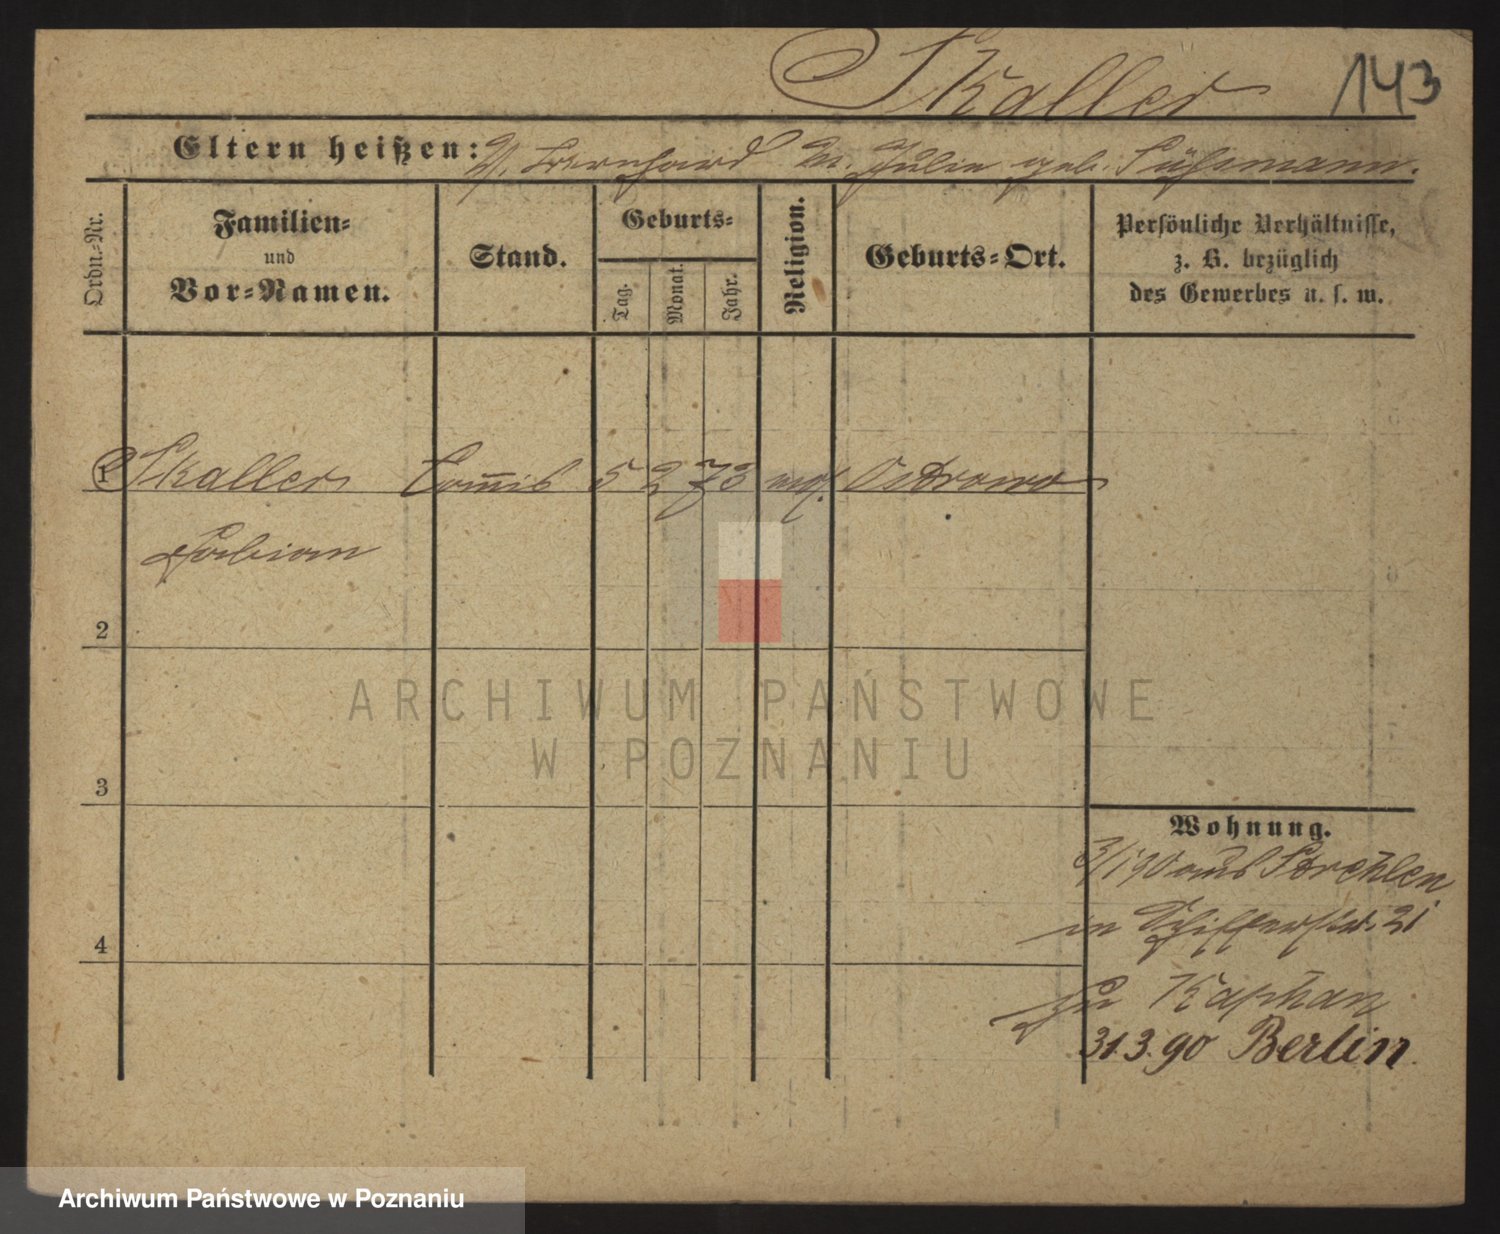 Skaller 143
Eltern heißen: V. Bernhard M. Julie geb. Süßmann.
Ordn.-Nr.
Familien-
und
Vor-Namen.
Stand.
Geburts-
Tag.
Monat.
Jahr.
Religion.
Geburts-Ort.
Persönliche Verhältnisse,
z. B. bezüglich
des Gewerbes u. s. w.
1 Skaller Com̅is 5 2 73 mos. Ostrowo
Fabian
2
ARCHIWUM PAŃSTWOWE
W POZNANIU
3
Wohnung.
3/1 90 aus Strehlen
in Schifferstr. 21
zu Kaphan
4
31.3.90 Berlin
Archiwum Państwowe w Poznaniu